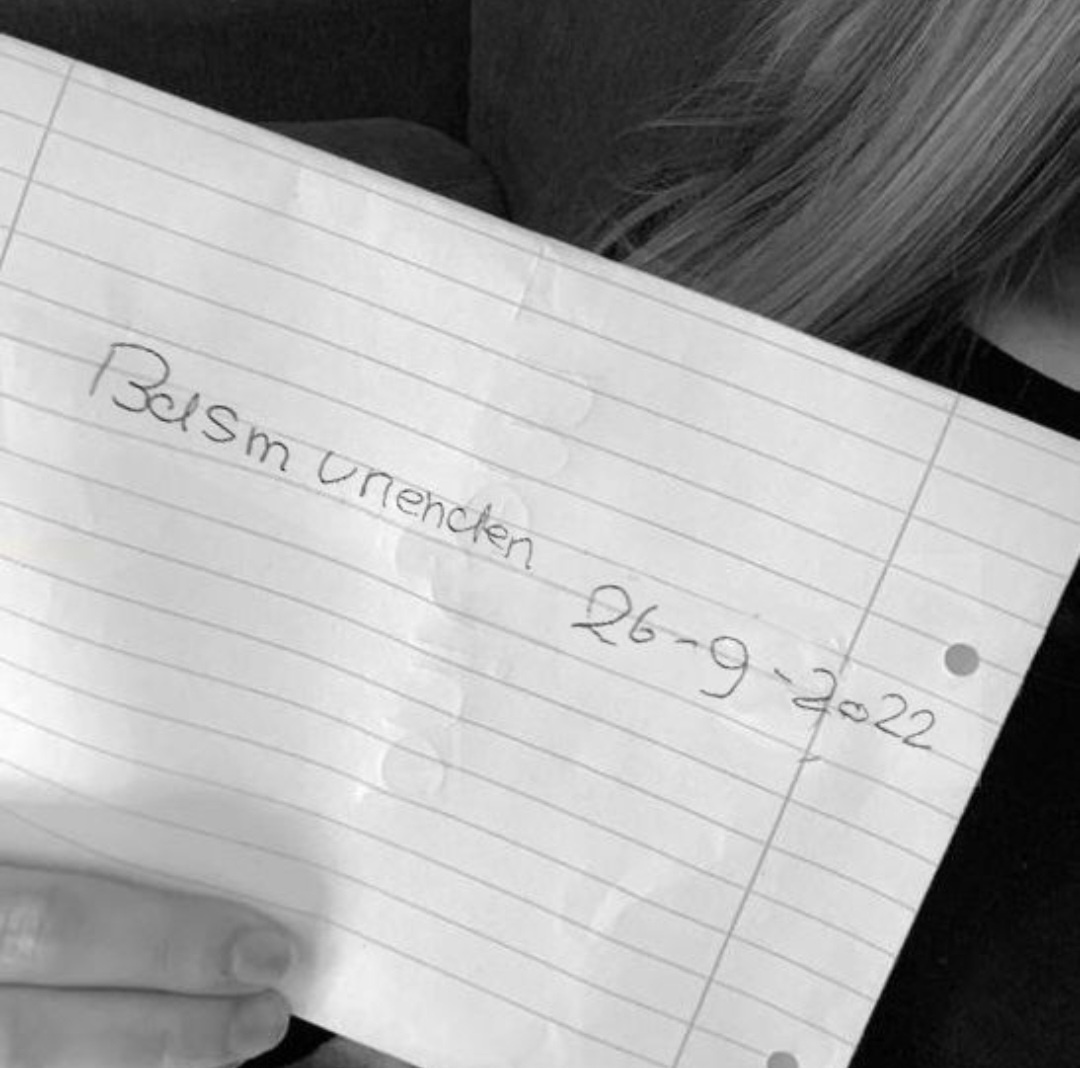 Bdsm vrienden 26-9-2022